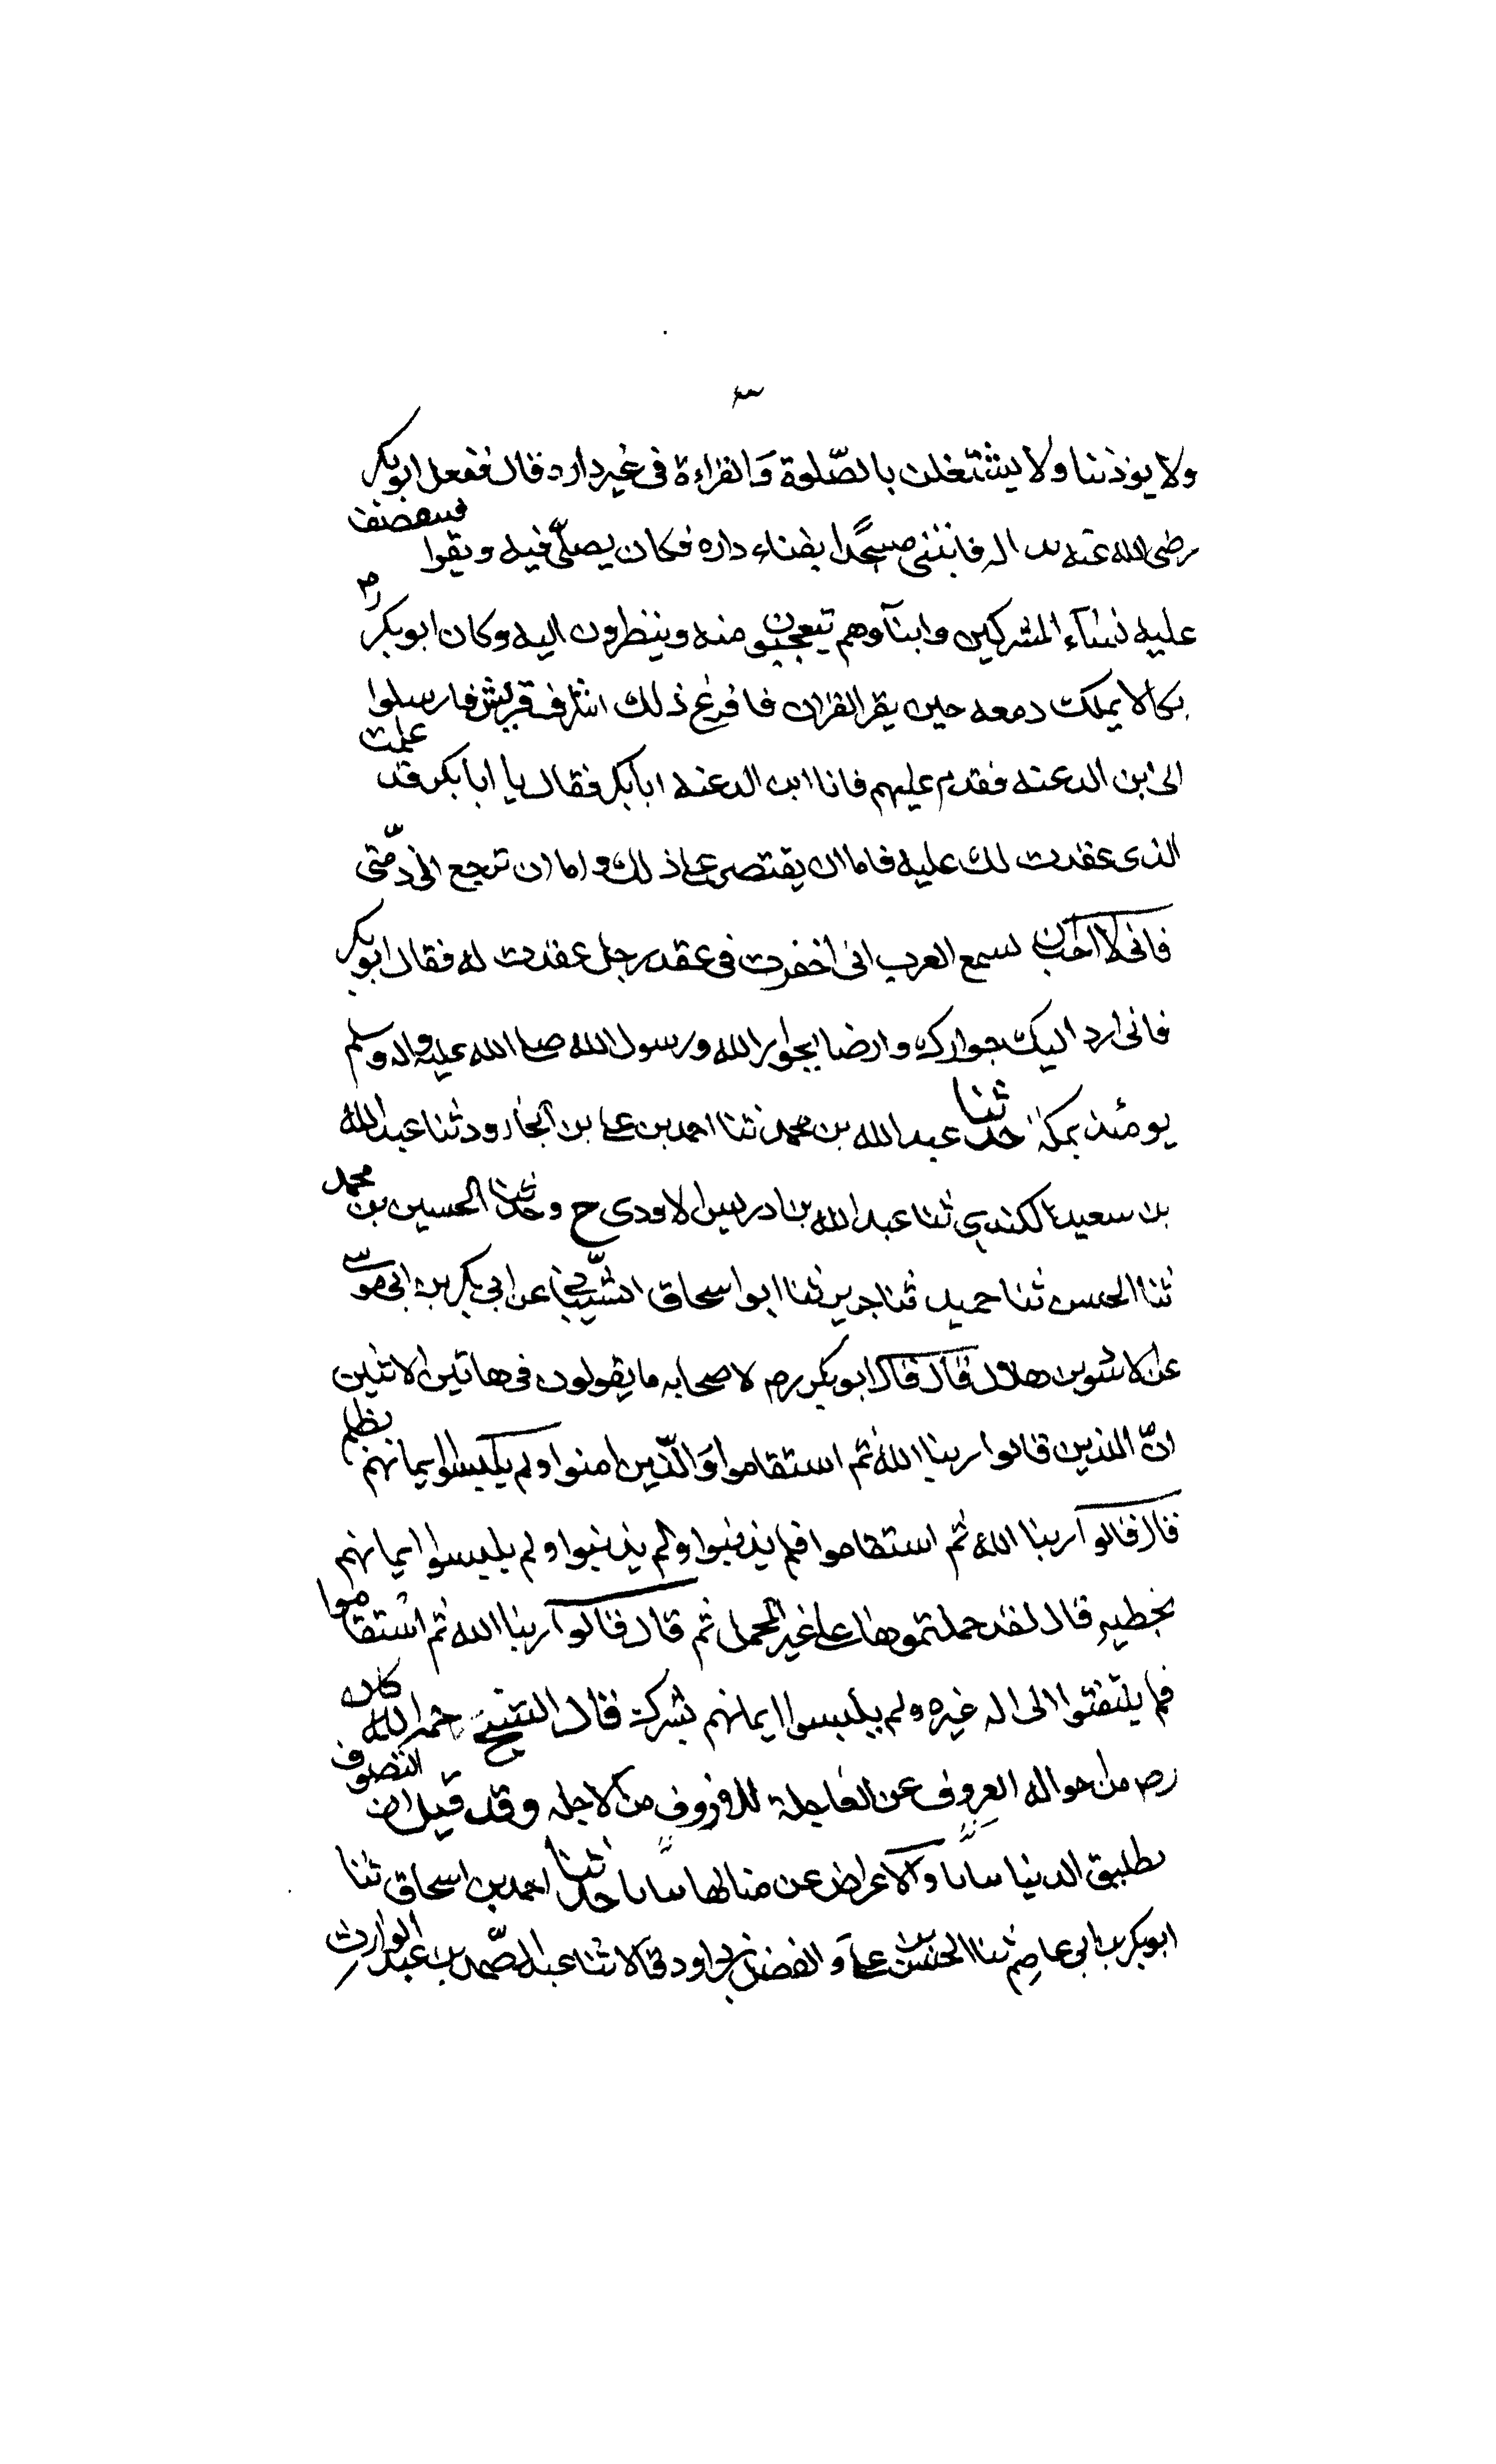 ٣
ولا يوذننا ولا يشتغلن بالصّلوة وَالقراءة فى غير داره قال ففعل ابوبكر
رضى الله عنه بد اله فابتنى مسجدًا بفناء داره فكان يصلّى فيه ويقوا فيتقصف
عليه نساء المشركين وابنآوهم تيعجبون منه وينظرون اليه وكان ابوبكر رم
بكا لا يملك دمعه حين يقر القران فافرغ ذلك اشرف قريش فارسلوا
الى ابن الدعنه فقدم عليهم فاتا ابن الدعنه ابابكر فقال يا ابا بكر قد علمت
الذى عقدت لك عليه فاما ان يقتصر على ذلك واما ان ترجع الى ذمّتى
فانى لا احب ان تسمع العرب انى اخفرت فى عقد رجل عقدت له فقال ابوبكر
فانى ارد اليك جوارك وارضا بجوار الله ورسول الله صلى الله عليه واله وسلم
يومئذ بمكة حدثنا عبد الله بن محمد ثنا احمد بن على بن الجارود ثنا عبد الله
بن سعيد الكندى ثنا عبد الله بن ادريس الاودى ح وحدثنا الحسين بن محمد
ثنا الحسن ثنا حميد ثنا جرير ثنا ابو اسحاق الشّيبانى عن ابى بكر بن ابى موسى
عن الاسوبن هلال قال قال ابوبكر رم لاصحابه ما يقولون فى هاتين الاثنين
انّ الذين قالوا ربنا الله ثم استقاموا وَالّذين امنوا ولم يلبسوا ايمانهم بظلم
قال قالوا ربنا الله ثم استقاموا فلم يذنبوا ولم يذنبوا ولم يلبسوا ايمانهم
بخطيه قال لقد حملتموها على غير المحمل ثم قال قالوا ربنا الله ثم استقاموا
فلم يلتفتوا الى اله غيره ولم يلبسوا ايمانهم بشرك قال الشيخ رحمه الله كان
رم من حواله العروف عن العاجلة للازوف من الاجله وقد قيل ان التصوف
تطليق الدنيا بتاتا والاعراض عن منالها ساتا حدثنا احمد بن اسحاق ثنا
ابوبكر بن ابى عاصم ثنا الحسن بن على وَ الفضل بن داود قالا ثنا عبد الصّمد بن عبد الوارث